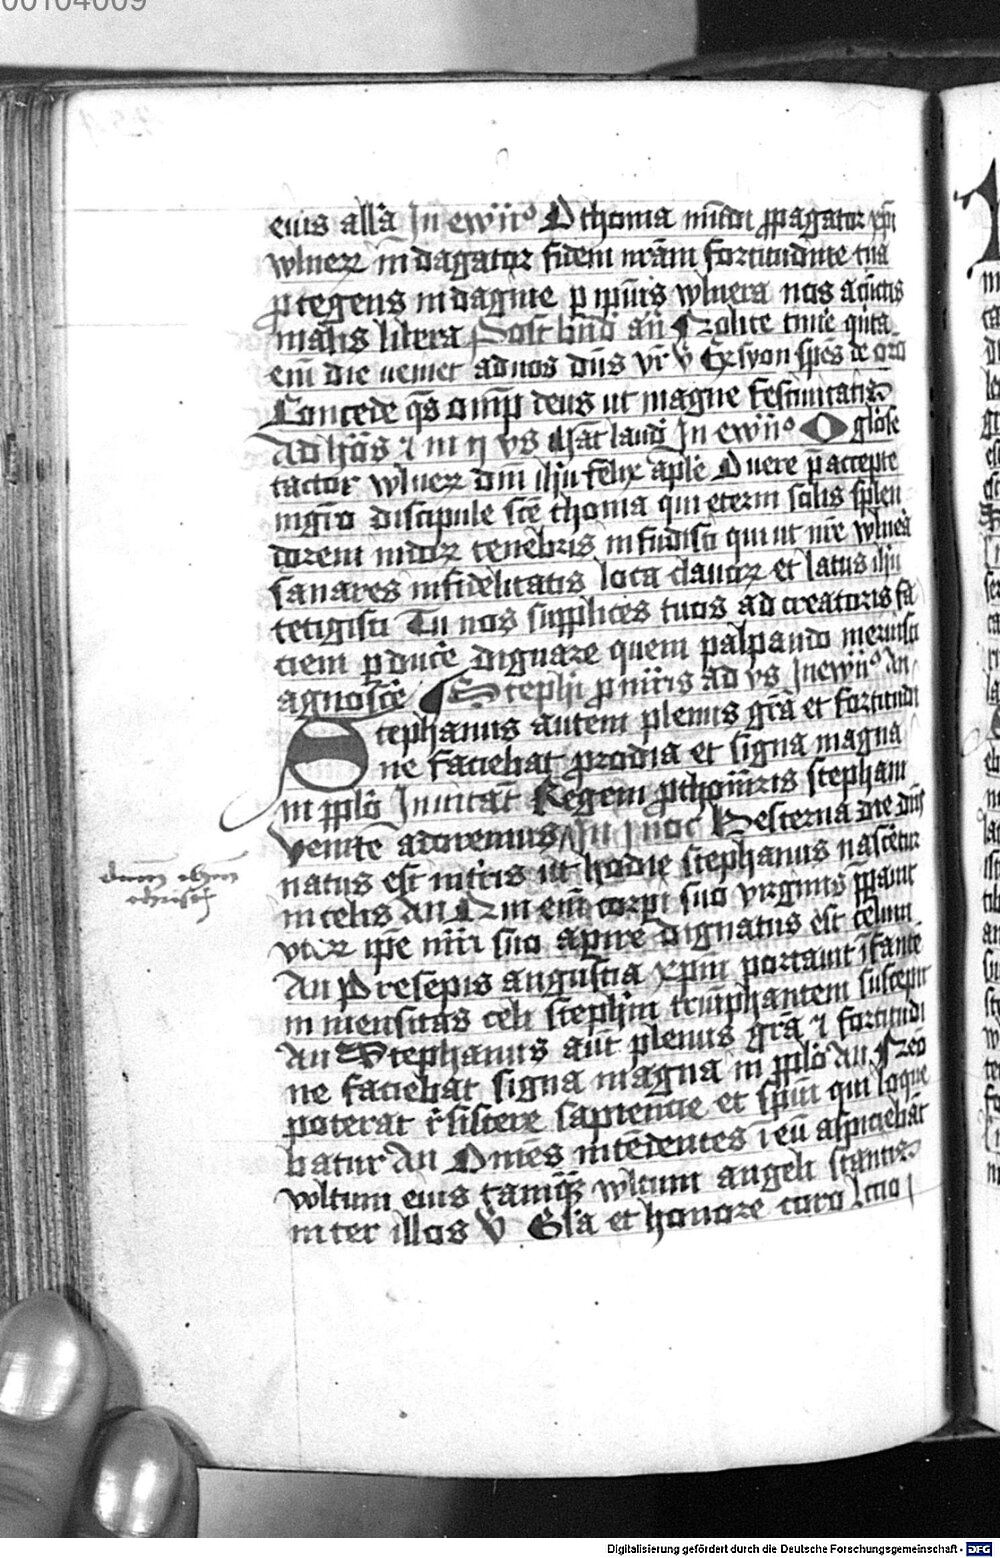 00104009
eius alla In ewᷓ O thoma mundi ꝓpagator xpi
wlnerꝝ indagator fidem nr̄am fortitudine tua
ꝓtegens indagine ꝑ ipius wlnera nos a cūctis
malis libera Post bn̄d an̄ Nolite timē quīta
eīm die veniet ad nos dn̄s vr̄ v̄ Ex syon spēs de oro
Concede qs̄ omp̄ deus ut magne festiuitatis
Ad hōs ⁊ in ij vs laud In ewᷓ O glōse
tactor wlnerꝝ dm̄ ihu felix aplē O vere p̄ accepte
discipule scē thoma qui eterni solis splen
dorem indorꝝ tenebris infudisti qui ut nr̄e wlnera
sanares infidelitatis loca clauorꝝ et latus ihu
tetigisti Tu nos supplices tuos ad creatoris fa
ciem ꝑducē dignare quem palpando meruisti
agnoscē Stephi ꝓmr̄is ad vs In ewᷓ An
Stephanus autem plenus grā et fortitudi
ne faciebat prodia et signa magna
in pplō Inuitat Regem ꝓthomr̄is stephani
venite adoremus In j noc Hesterna die dn̄s
natus est in terris ut hodie stephanus nascētur
in celis An Qm̄ eīm corpi suo virginis ꝑpauit
ipe mr̄i suo apire dignatus est celum
An Presepis angustia xpm̄ portauit īfantē
inmensitas celi stephm̄ triūphantem suscepit
An Stephanus aūt plenus grā ⁊ fortitudi
ne faciebat signa magna in pplō An Nō
poterat r̄sistere sapiencie et spūi qui loque
batur An Omēs intēdentes ī eū aspiciebāt
wltum eius tamqȝ wltum angeli stantis
inter illos v̄ Glā et honore coro lcio j
Digitalisierung gefördert durch die Deutsche Forschungsgemeinschaft - DFG